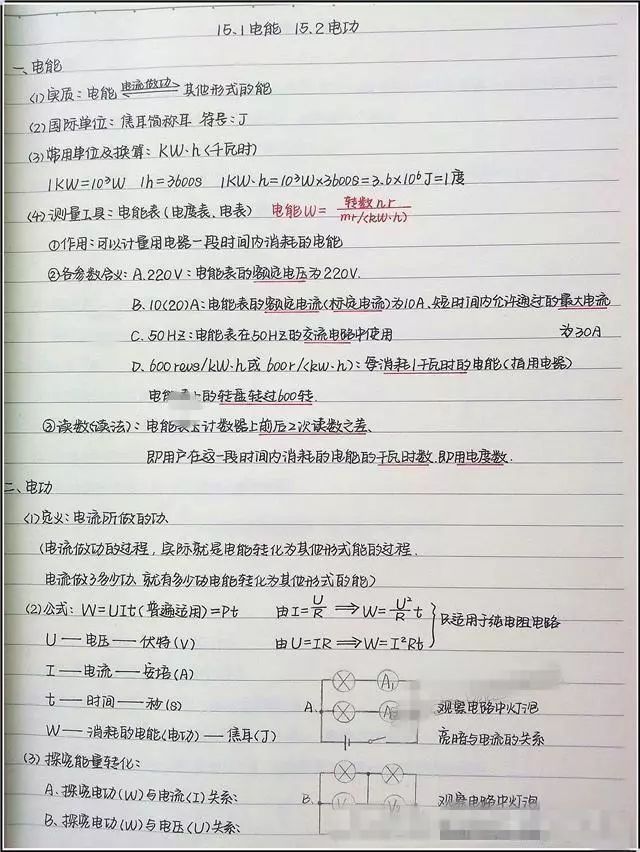 15.1电能 15.2电功
一、电能
(1)实质:电能 电流做功 其他形式的能
(2)国际单位:焦耳简称耳 符号:J
(3)常用单位及换算: KW·h(千瓦时)
1KW=10³W 1h=3600s 1KW·h=10³W×3600s=3.6×10⁶J=1度
(4)测量工具:电能表(电度表、电表) 电能W= 转数nr / mr/(kW·h)
①作用:可以计量用电器一段时间内消耗的电能
②各参数含义:A.220V:电能表的额定电压为220V.
B.10(20)A:电能表的额定电流(标定电流)为10A.短时间内允许通过的最大电流
为30A
C.50HZ:电能表在50HZ的交流电路中使用
D.600rews/kW·h或600r/(kW·h):每消耗1千瓦时的电能(指用电器)
电能 上的转盘转过600转.
③读数(读法):电能 计数器上前后2次读数之差、
即用户在这一段时间内消耗的电能的千瓦时数.即用电度数.
二、电功
(1)定义:电流所做的功、
(电流做功的过程,实际就是电能转化为其他形式能的过程.
电流做了多少功.就有多少电能转化为其他形式的能)
(2)公式: W=UIt(普遍适用)=Pt 由I=U/R ⟹ W=U²/R t
U — 电压 — 伏特(V) 由U=IR ⟹ W=I²Rt
只适用于纯电阻电路
I — 电流 — 安培(A)
t — 时间 — 秒(s)
W — 消耗的电能(电功) — 焦耳(J)
A. A₁
观察电路中灯泡
亮暗与电流的关系
(3)探究能量转化:
A、探究电功(W)与电流(I)关系:
B、探究电功(W)与电压(U)关系:
B.
观察电路中灯泡